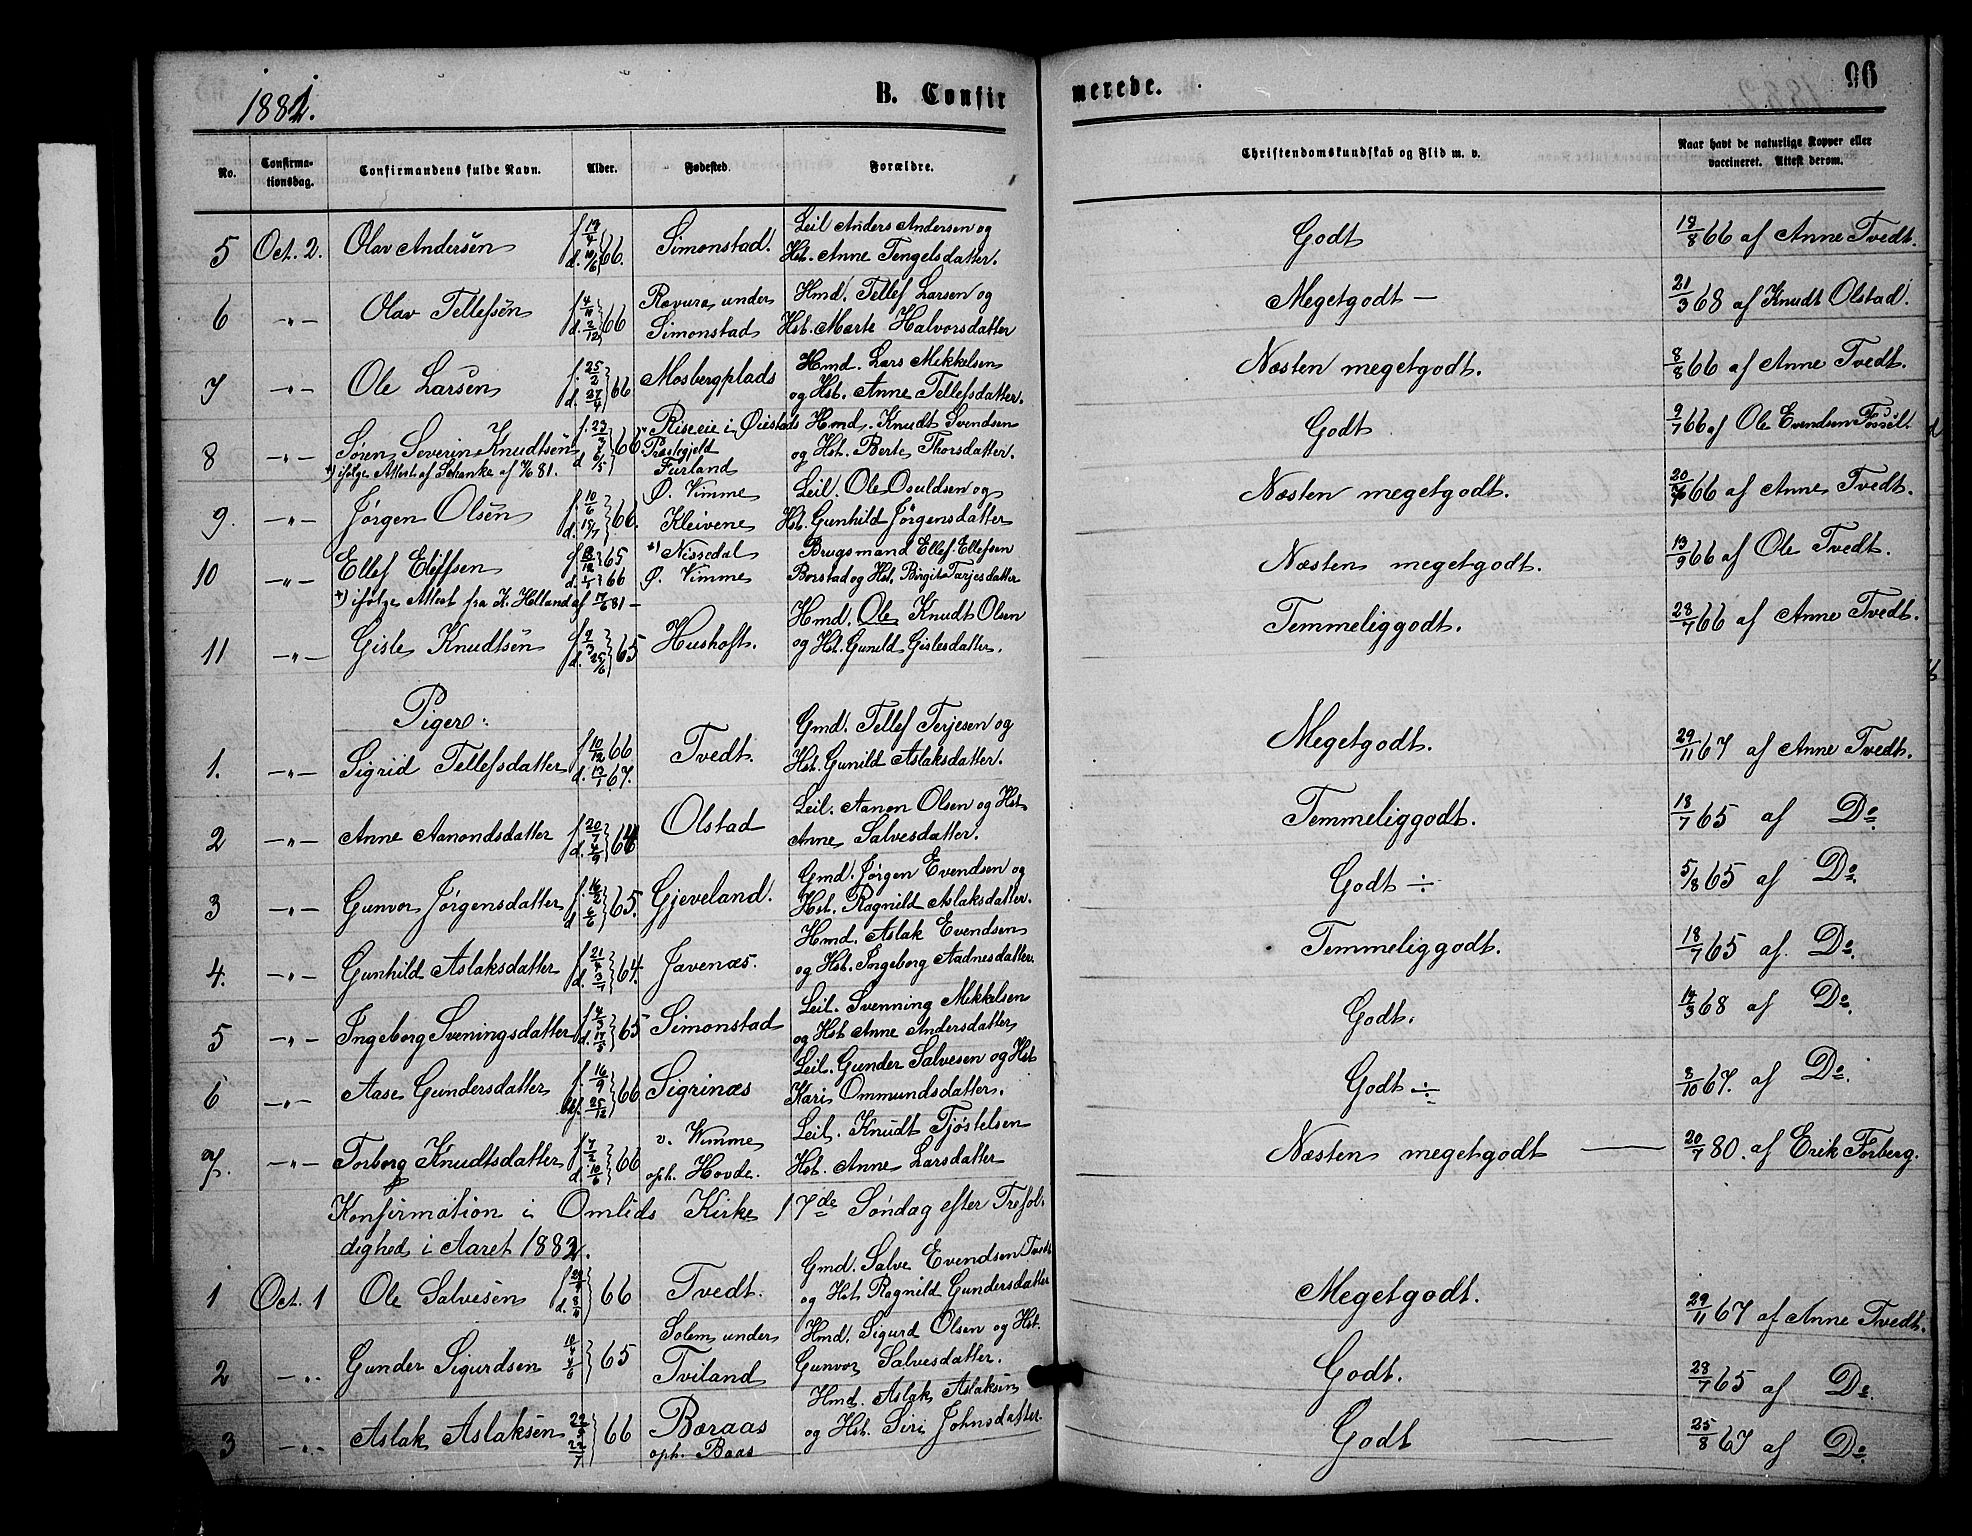 1881.
B. Confirmerede.
96
No.
Confirmationsdag.
Confirmandens fulde Navn.
Alder.
Fødested.
Forældre.
Christendomskundskab og Flid m. v.
Naar havt de naturlige Kopper eller vaccineret. Attest derom.
5 Oct. 2. Olav Andersen f. 17/4 d. 10/6 66. Simonstad. Leil Anders Andersen og Hst. Anne Tengelsdatter. Godt 18/8 66 af Anne Tvedt.
6 -"- Olav Tellefsen f. 4/11 d. 2/12 66 Ravura under Simonstad Hmd. Tellef Larsen og Hst. Marte Halvorsdatter Megetgodt — 21/3 68 af Knudt Olstad.
7 -"- Ole Larsen f. 25/2 d. 27/4 66 Mosbergplads Hmd. Lars Mikkelsen og Hst. Anne Tellefsdatter. Næsten megetgodt. 8/8 66 af Anne Tvedt.
8 -"- Søren Severin Knudtsen f. 23/3 d. 6/5 66 Riseeie i Øiestads Præstegjeld Furland Hmd. Knudt Svendsen og Hst. Berte Thorsdatter. Godt 9/7 66 af Ole Evendsen
+) ifølge Attest af Schanke af 81.
9. -"- Jørgen Olsen f. 10/6 d. 15/7 66. Ø. Vimme Kleivene Leil. Ole Osuldsen og Hst. Gunhild Jørgensdatter Næsten megetgodt. 20/7 66 af Anne Tvedt.
10 -"- Ellef Elleffsen 65 d. 1/1 66 +) Nissedal Ø. Vimme Brugsmand Ellef Ellefsen Borstad og Hst. Birgit Tarjesdatter Næsten megetgodt. 13/9 66 af Ole Tvedt.
+) ifølge Attest fra K. Helland af 17/6 81 –
11 -"- Gisle Knudtsen f. 9/3 d. 25/6 65 Hushoft. Hmd. Ole Knudt Olsen og Hst. Gunild Gislesdatter. Temmeliggodt. 28/7 66 af Anne Tvedt.
Piger:
1. -"- Sigrid Tellefsdatter f. 10/12 66 d. 13/1 67. Tvedt. Gmd. Tellef Terjesen og Hst. Gunild Aslaksdatter. Megetgodt. 29/11 67 af Anne Tvedt.
2 -"- Anne Aanondsdatter f. 20/7 d. 4/9 64 Olstad Leil. Aanon Olsen og Hst Anne Salvesdatter. Temmeliggodt. 18/7 65 af Do.
3 -"- Gunvor Jørgensdatter f. 16/2 d. 6/6 65. Gjeveland. Gmd. Jørgen Evendsen og Hst. Ragnild Aslaksdatter. Godt ÷ 5/8 65 af Do.
4. -"- Gunhild Aslaksdatter f. 21/4 d. 3/7 64. Javenæs. Hmd. Aslak Evendsen og Hst. Ingeborg Aadnesdatter. Temmeliggodt. 18/7 65 af. Do.
5 -"- Ingeborg Sveningsdatter f. 4/3 d. 17/5 65 Simonstad Leil. Svenning Mikkelsen og Hst Anne Andersdatter Godt. 14/3 68 af Do.
6 -"- Aase Gundersdatter f. 16/9 25/12 66 Sigrinæs Leil. Gunder Salvesen og Hst Kari Ommundsdatter. Godt ÷ 3/10 67. af Do.
7. -"- Torborg Knudtsdatter f. 7/2 d. 10/6 66 v. Wimme oph. Hovde. Leil. Knudt Tjøstelsen Hst. Anne Larsdatter Næsten megetgodt — 20/7 80. af Erik Forberg.
Konfirmation i Omlids Kirke 17de Søndag efter Trefoldighed i Aaret 1882.
1 Oct. 1 Ole Salvesen 66 Tvedt. Gmd. Salve Evendsen Tvedt og Hst Ragnild Gundersdatter Megetgodt. 29/11 67 af Anne Tvedt.
2 -"- Gunder Sigurdsen 65 Solem under Tviland Hmd. Sigurd Olsen og Hst. Gunvor Salvesdatter. Godt. 28/7 65 af Do.
3 -"- Aslak Aslaksen 66 Bæraas oph. Baas Hmd. Aslak Aslaksen og Hst. Siri Johnsdatter. Godt — 25/8 67 af Do